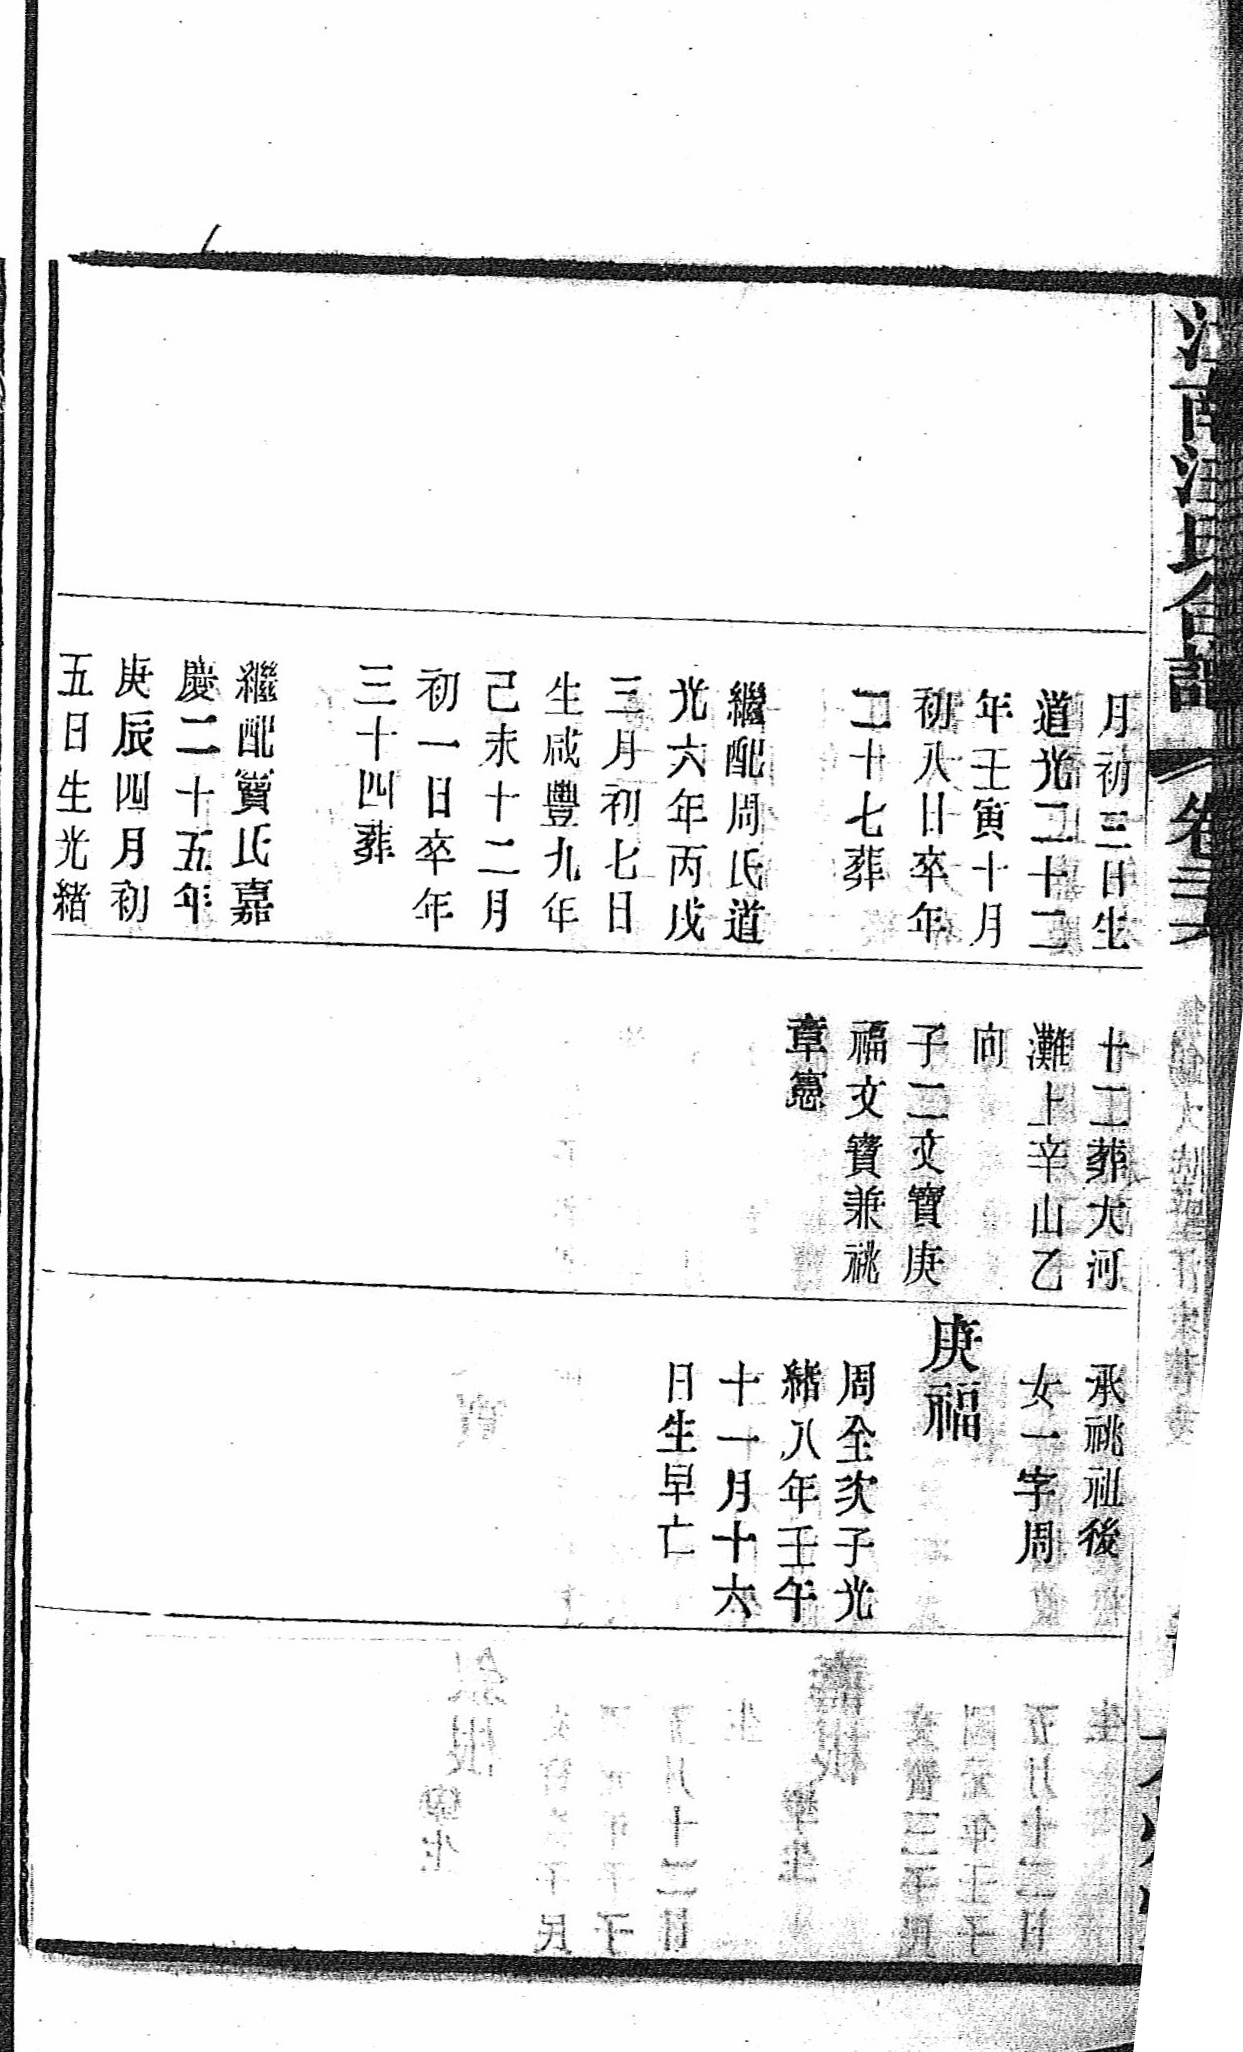 月初三日生
道光二十二
年壬寅十月
初八日卒年
二十七葬
繼配周氏道
光六年丙戌
三月初七日
生咸豐九年
己未十二月
初一日卒年
三十四葬
繼配竇氏嘉
慶二十五年
庚辰四月初
五日生光緒
十二葬大河
灘上辛山乙
向
子二文寶庚
福文寶兼祧
章憲
承祧祖後
女一字周
庚福
周全次子光
緒八年壬午
十一月十六
日生早亡